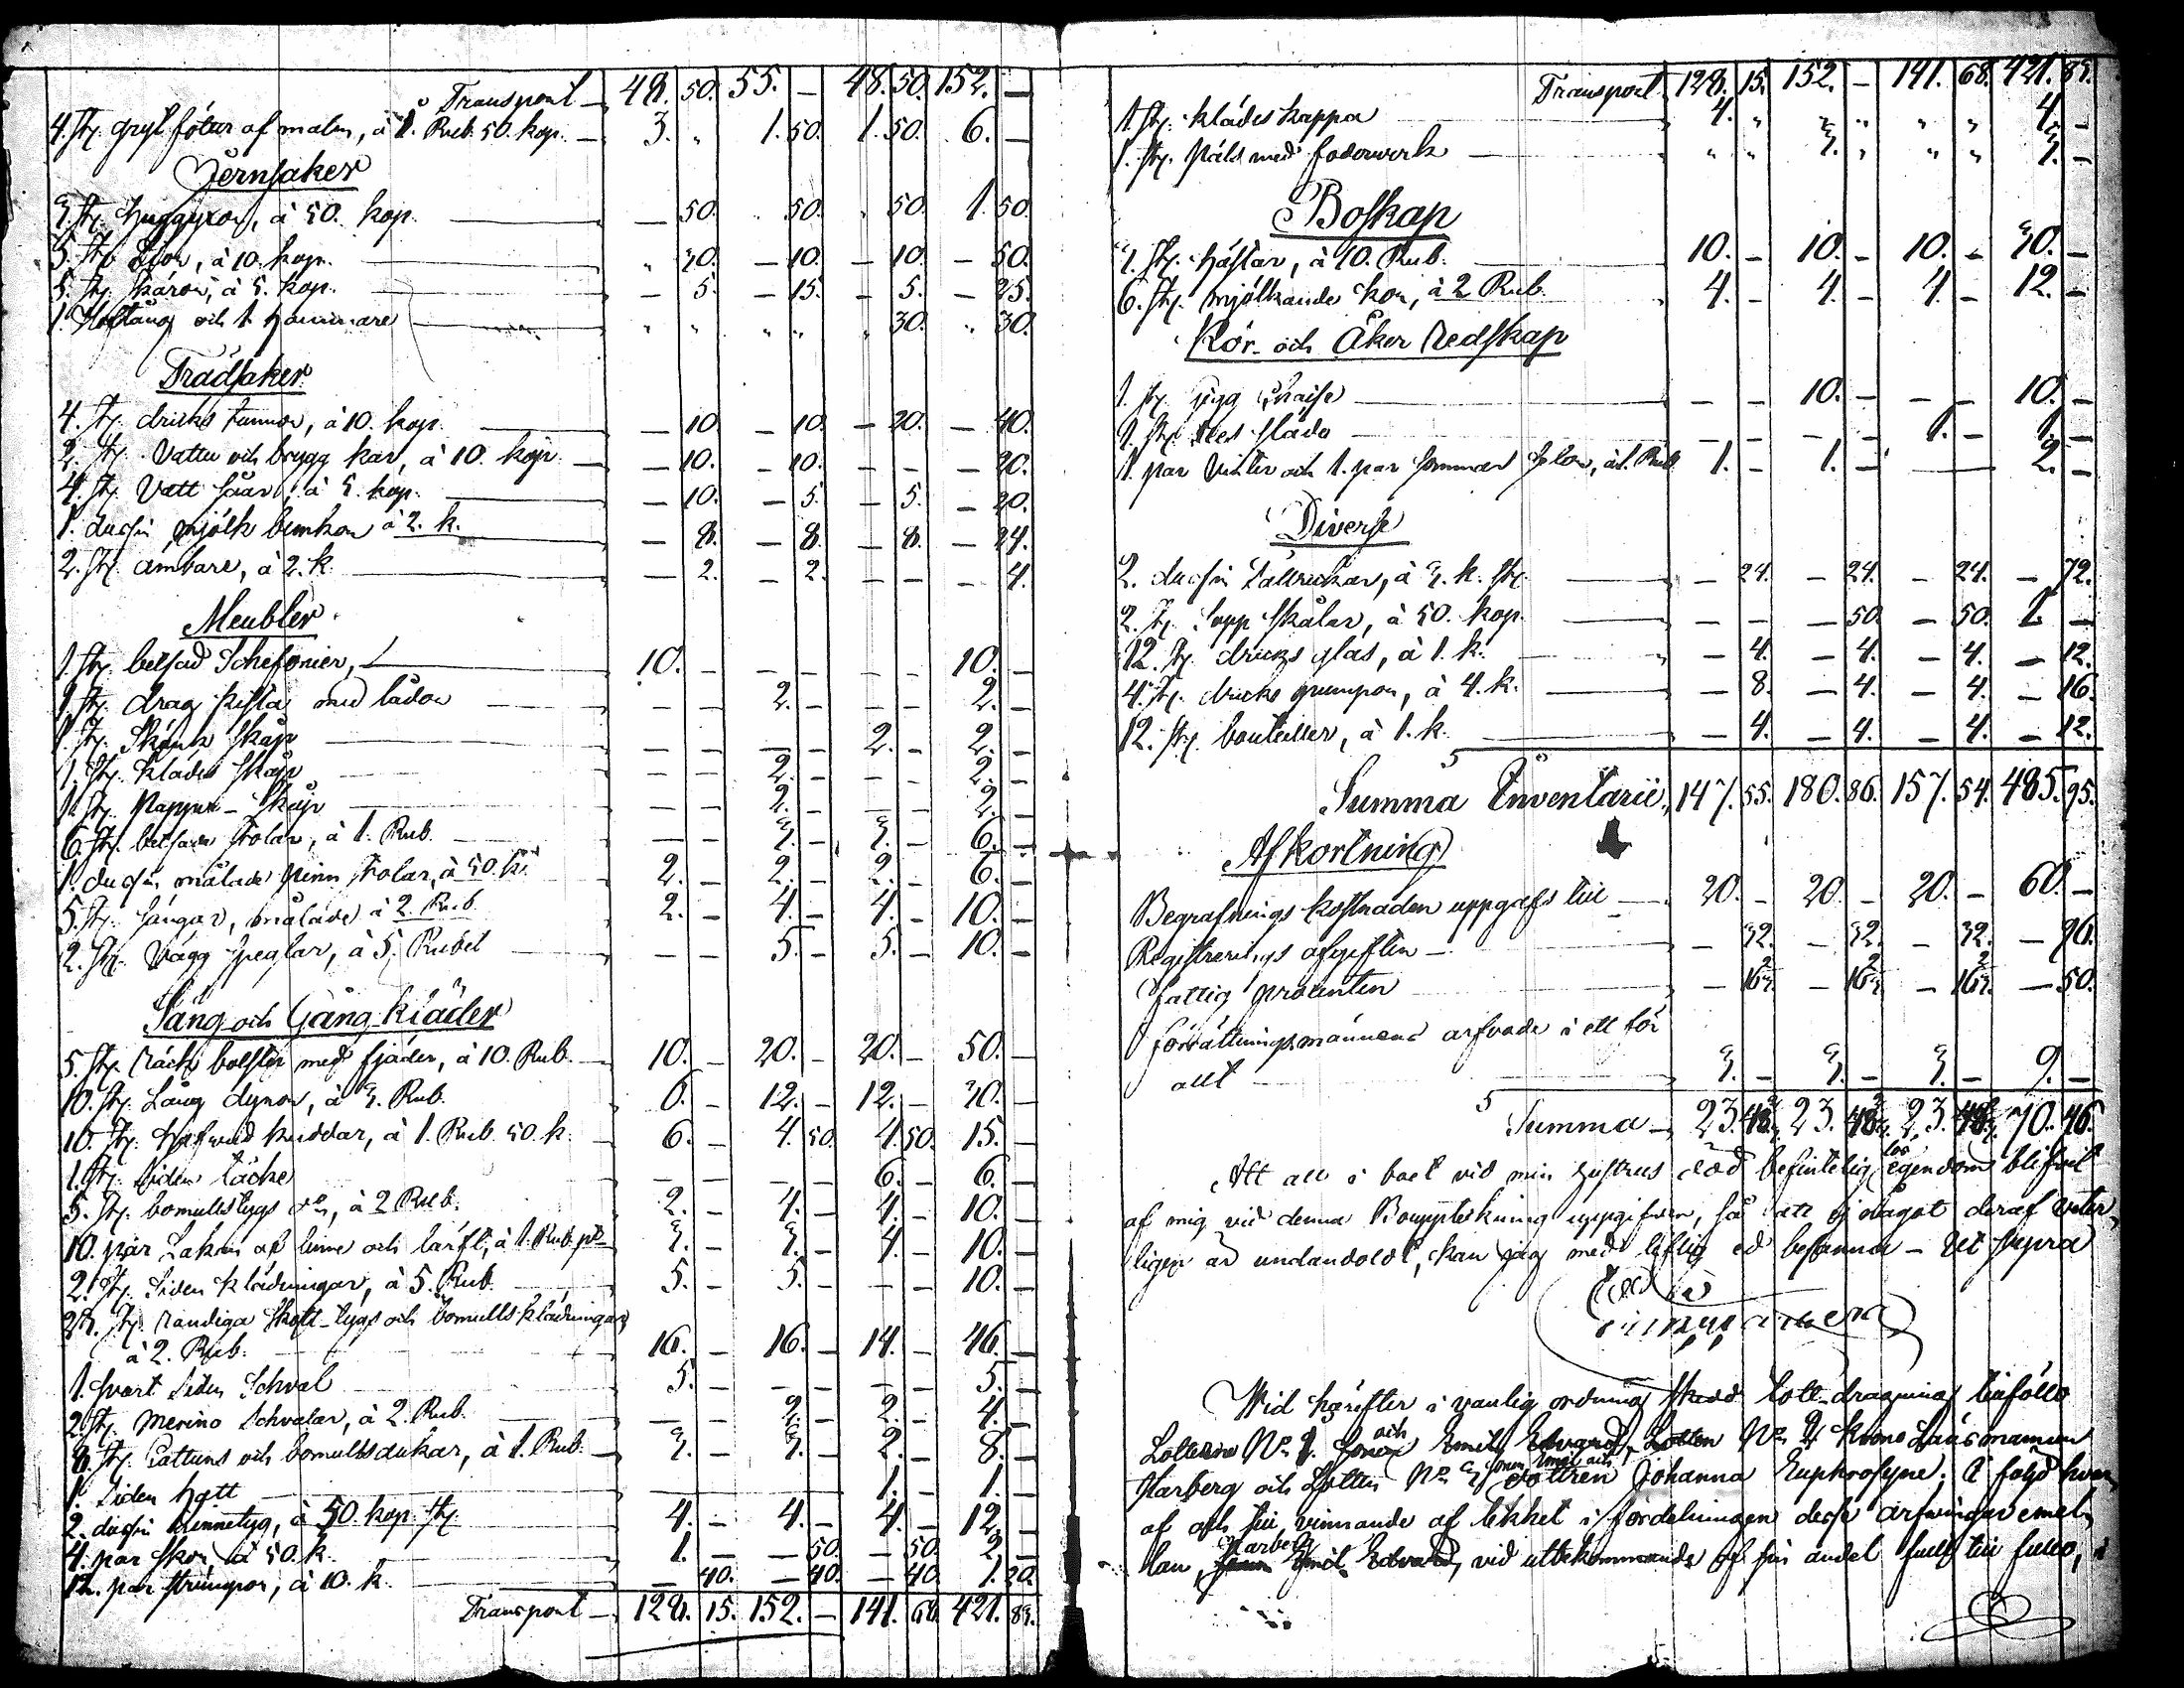 Transport — 48. 50. 55. — 48. 50. 152. —
4. St. gryt fötter af malm, à 1. Rub. 50. kop. — 3. " 1. 50. 1. 50. 6. —
Jernsaker
3. St. huggyxor, à 50. kop. — 50. 50. 50. 1. 50.
5. St. Lior, à 10. kop. 30. — 10. — 10. — 50.
5. St. skäror, à 5. kop. — 5. — 15. — 5. — 25.
1. Hoftång och 1. hammare " " " " " 30. " 30.
Trädsaker
4. St. dricks tunnor, à 10. kop. — 10. — 10. — 20. — 40.
2. St. Vattu och brygg kar, à 10. kop. — 10. — 10. — — — 20.
4. St. Vatt såar, à 5. kop. — 10. — 5. — 5. — 20.
1. dussin mjölk bunkor à 2. k. — 8. — 8. — 8. — 24.
2. St. ämbare, à 2. k. — 2. — 2. — — — 4.
Meubler
1. St. betsad Schefonier, 10. — — — — — 10. —
1. St. drag kista med lådor — — 2. — — — 2. —
1. St. Skänk skåp — — — — 2. — 2. —
1. St. klädes skåp — — 2. — — — 2. —
1. St. Pappers-skåp — — 2. — — — 2. —
6. St. betsade stolar, à 1. Rub. — — 3. — 3. — 6. —
1. dussin målade pinn stolar, à 50. k. 2. — 2. — 2. — 6. —
5. St. sängar, målade à 2. Rub. 2. — 4. — 4. — 10. —
2. St. Vägg speglar, à 5. Rubel — — 5. — 5. — 10. —
Säng- och Gång-kläder
5. St. bolster med fjäder, à 10. Rub. — 10. — 20. — 20. — 50. —
10. St. Lång dynor, à 3. Rub. 6. — 12. — 12. — 30. —
10. St. hufwud kuddar, à 1. Rub. 50. k. 6. — 4. 50. 4. 50. 15. —
1. St. siden täcke — — — — 6. — 6. —
5. St. bomullstygs do, à 2 Rub. 2. — 4. — 4. — 10. —
10. par Lakan af linne och lärft, à 1. Rub. pr 3. — 3. — 4. — 10. —
2. St. Siden klädningar, à 5. Rub. 5. — 5. — — — 10. —
23. St. randiga skott-tygs och bomulls klädningar
à 2. Rub. 16. — 16. — 14. — 46. —
1. svart siden Schval 5. — — — — — 5. —
2. St. Merino Schvalar, à 2. Rub. — — 2. — 2. — 4. —
8. St. Cattuns och bomullsdukar, à 1. Rub. 3. — 3. — 2. — 8. —
1. Siden hatt 1. — 1. —
2. dussin linnetyg, à 50. kop. St. 4. — 4. — 4. — 12. —
4. par skor, à 50. k. 1. — — 50. — 50. 2. —
12. par strumpor, à 10. k. — 40. — 40. — 40. 1. 20.
Transport — 128. 15. 152. — 141. 68. 421. 83.
Transport 128. 15. 152. — 141. 68. 421. 83.
1. St. klädes kappa 4. " " " " " 4. —
1. St. Päls med foderwerk " " 3. " " " 3. —
Boskap
3. St. hästar, à 10. Rub. 10. — 10. — 10. — 30. —
6. St. mjölkande kor, à 2 Rub. 4. — 4. — 4. — 12. —
Kör- och Åker Redskap
1. St. gigg schaise — — 10. — — — 10. —
1. St. släda — — — — 1. — 1. —
1. par vinter och 1. par sommar, à 1. Rub. 1. — 1. — — 2. —
Diverse
2. dussin Tallrickar, à 3. k. St. — 24. — 24. — 24. — 72.
2. St. Sopp skålar, à 50. kop. — — — 50. — 50. 1. —
12. St. dricks glas, à 1. k. — 4. — 4. — 4. — 12.
4. St. dricks, à 4. k. — 8. — 4. — 4. — 16.
12. St. bouteiller, à 1. k. — 4. — 4. — 4. — 12.
Summa Inventarii, 147. 55. 180. 86. 157. 54. 485. 95.
Afkortning
Begrafnings kostnaden uppgafs till — 20. — 20. — 20. — 60. —
Registrerings afgiften — — 32. — 32. — 32. — 96.
fattig procenten — 16 2/3. — 16 2/3. — 16 2/3. — 50.
förrättningsmännens arfvode i ett för
allt 3. — 3. — 3. — 9. —
Summa — 23. 48 2/3. 23. 48 2/3. 23. 48 2/3. 70. 46.
Att all i boet vid min hustrus död befintelig lös egendom blifvit
af mig vid denna Bouppteckning uppgifven, så att ej något deraf veter-
ligen är undandoldt, kan jag med liflig ed besanna — Ut supra
Wid härefter i vanlig ordning skedd lott-dragning tillföllo
Lotterne No 1. Sonen och Emil Edvard, Lotten No 2 Krono Länsmannen
Harberg och Lotten No 3 sonen Emil och dottren Johanna Euphrosyne; I följd hvar-
af och till vinnande af likhet i fördelningen desse arfwingar emel-
lan, Harberg Emil Edvard, vid utbekommande af sin andel fullt till fullo,